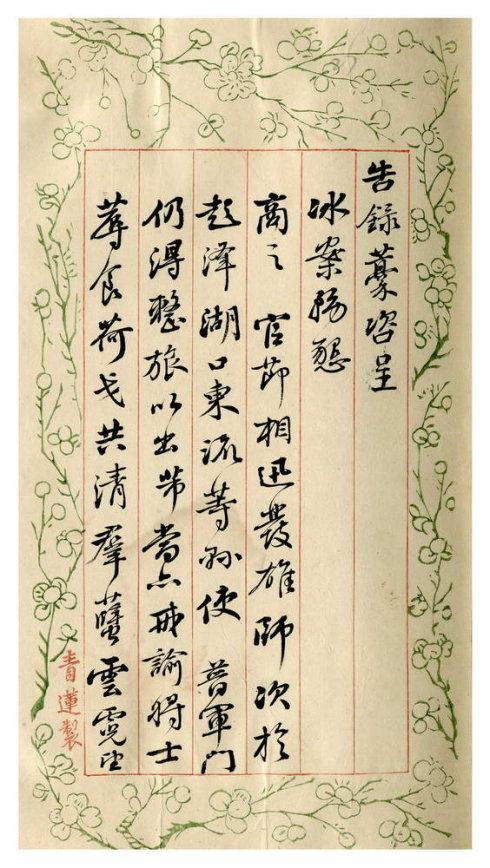 告錄藁咨呈
冰案務懇
商之 官節相迅發雄師次於
彭澤湖口東流等縣使 普軍門
仍得整旅以出弟當亦戒諭將士
蓐食荷戈共清羣孽雲霓望
青蓮製